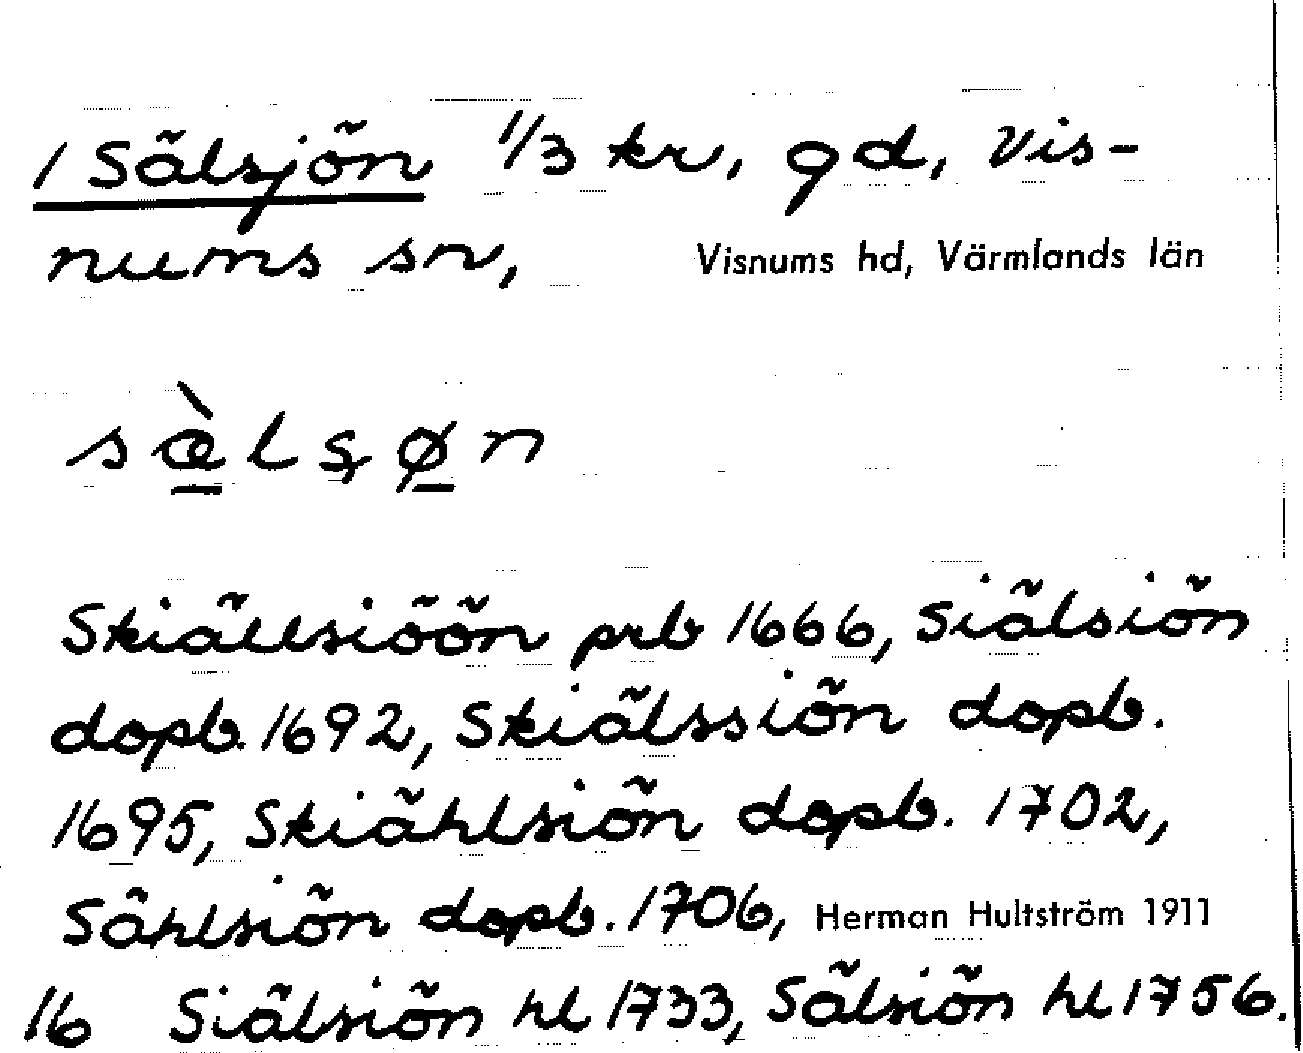 1 Sälsjön 1/3 kr, gd, Vis-
nums sn, Visnums hd, Värmlands län
sæ̀lsøn
Skiällsiöön prb 1666, Siälsiön
dopb. 1692, Skiälssiön dopb.
1695, Skiählsiön dopb. 1702,
Sählsiön dopb. 1706, Herman Hultström 1911
16 Siälsiön hl 1733, Sälsiön hl 1756.